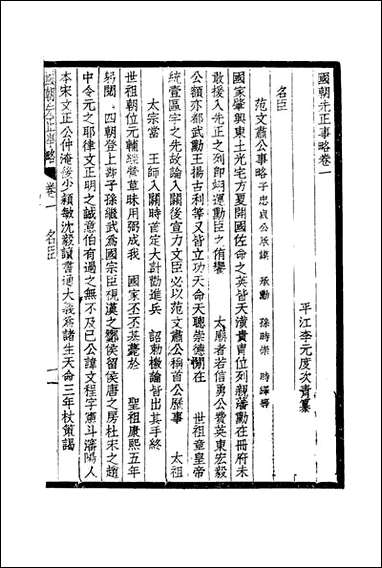 國朝先正事略卷一
平江李元度次青纂
名臣
范文肅公事略 子忠貞公承謨 承勳 孫時崇 時繹 等
國家肇興東土光宅方夏開國佐命之英皆天潢貴胄位列親藩勳在冊府未
敢援入先正之列即翊運勳臣之侑饗 太廟者若信勇公費英東宏毅
公額亦都武勳王揚古利等又皆立功天命天聰崇德間在 世祖章皇帝
統壹區宇之先故論入關後宣力文臣必以范文肅公稱首公歷事 太祖
太宗當 王師入關時首定大計勸進兵 詔勅檄諭皆出其手終
世祖朝位元輔經營草昧用弼成我 國家丕丕基薨於 聖祖康熙五年
躬閱 四朝登上壽子孫繼武為國宗臣視漢之酇侯留侯唐之房杜宋之趙
中令元之耶律文正明之誠意伯有過之無不及已公諱文程字憲斗瀋陽人
本宋文正公仲淹後少穎敏沈毅讀書通大義為諸生天命三年杖策謁
國朝先正事略 卷一 名臣 一